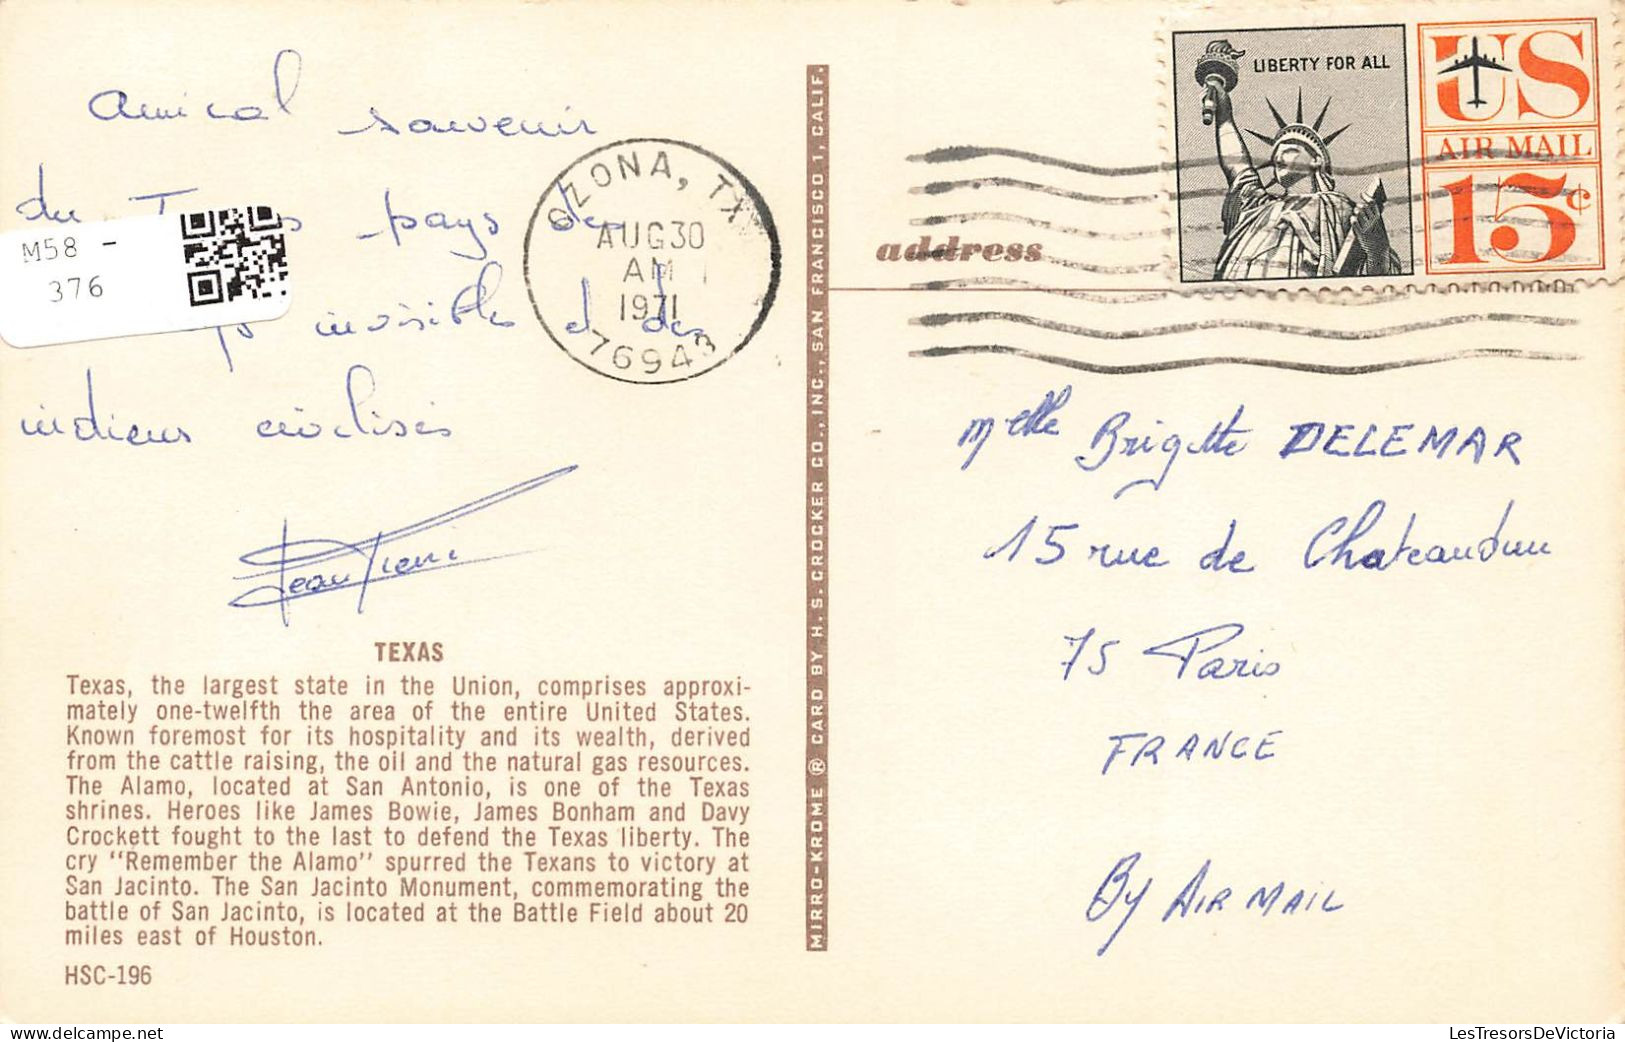 amical souvenir
du pays des
invisibles et des
indiens civilisés
Jean Pierre
M58 -
376
OZONA, TX
AUG30
AM
1971
76943
TEXAS
Texas, the largest state in the Union, comprises approxi-
mately one-twelfth the area of the entire United States.
Known foremost for its hospitality and its wealth, derived
from the cattle raising, the oil and the natural gas resources.
The Alamo, located at San Antonio, is one of the Texas
shrines. Heroes like James Bowie, James Bonham and Davy
Crockett fought to the last to defend the Texas liberty. The
cry "Remember the Alamo" spurred the Texans to victory at
San Jacinto. The San Jacinto Monument, commemorating the
battle of San Jacinto, is located at the Battle Field about 20
miles east of Houston.
HSC-196
MIRRO-KROME ® CARD BY H. S. CROCKER CO., INC., SAN FRANCISCO 1, CALIF.
LIBERTY FOR ALL
US
AIR MAIL
15¢
address
Melle Brigitte DELEMAR
15 rue de Chateaudun
75 Paris
FRANCE
By AIR MAIL
LesTresorsDeVictoria